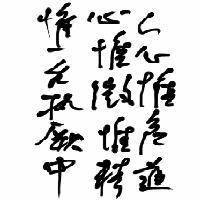 人心惟危道
心惟微惟精
惟一允执厥中